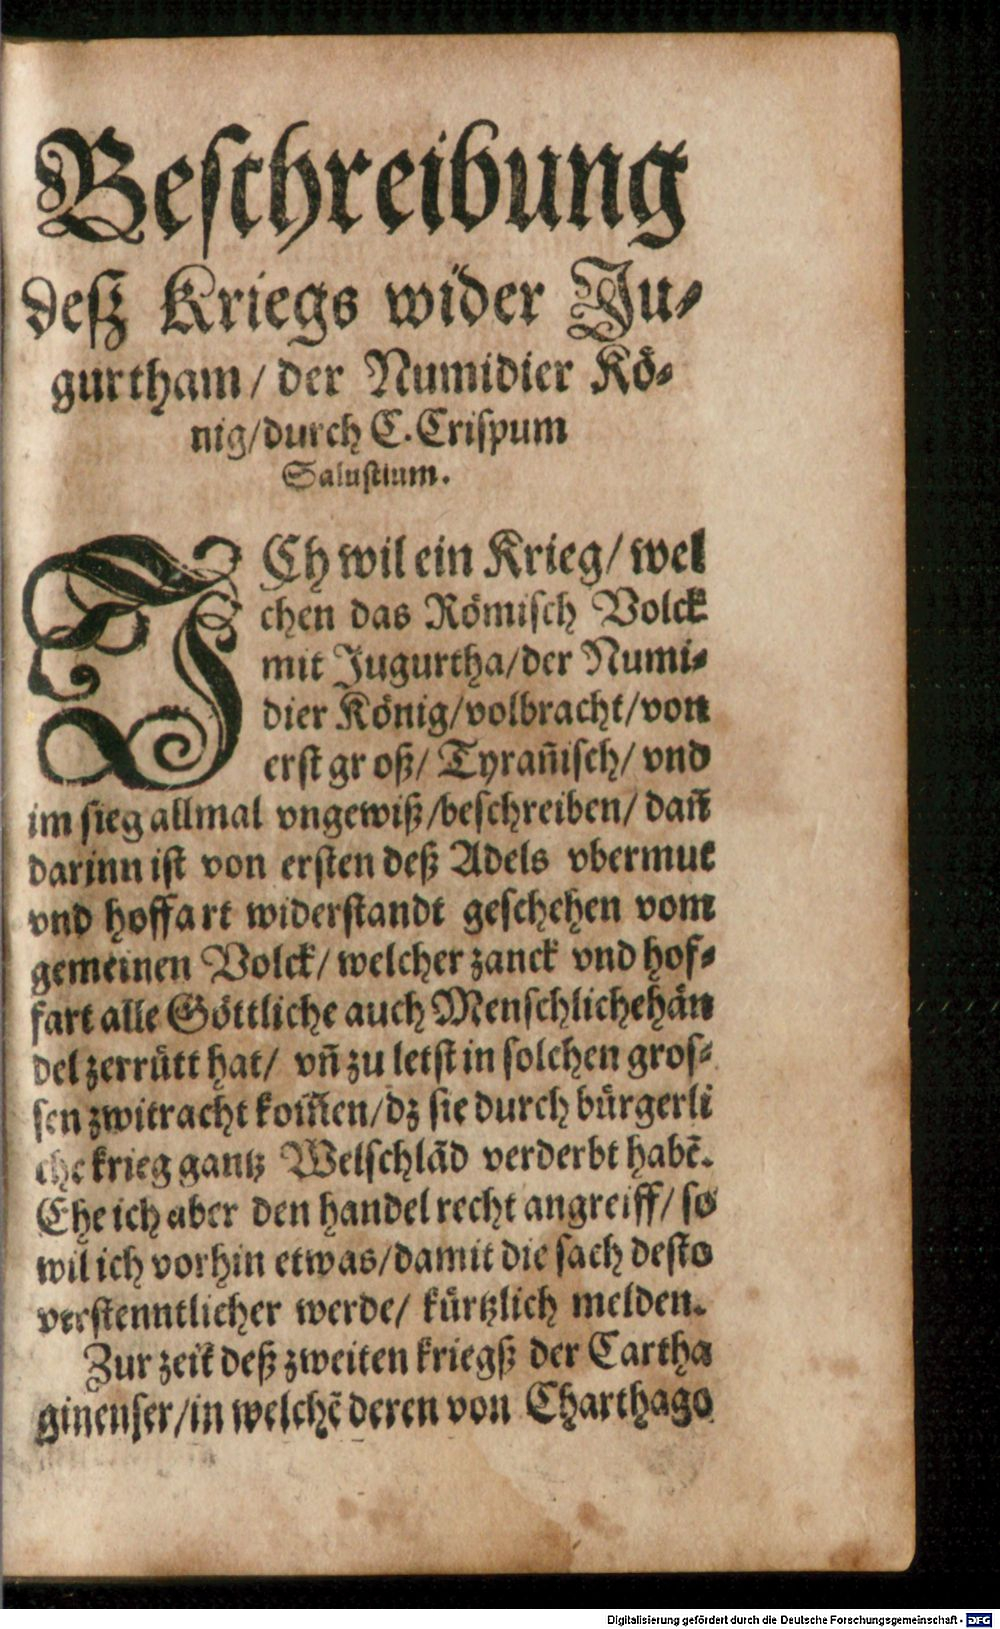 Beschreibung
deß Kriegs wider Ju⸗
gurtham/ der Numidier Kö⸗
nig/durch C. Crispum
Salustium.
ICh wil ein Krieg/ wel
chen das Römisch Volck
mit Jugurtha/der Numi⸗
dier König/volbracht/von
erst groß/ Tyrañisch/ vnd
im sieg allmal vngewiß/beschreiben/ dañ
darinn ist von ersten deß Adels vbermut
vnd hoffart widerstandt geschehen vom
gemeinen Volck/ welcher zanck vnd hof⸗
fart alle Göttliche auch Menschliche hän
del zerrütt hat/ vñ zu letst in solchen gros⸗
sen zwitracht kom̃en/dz sie durch bürgerli
che krieg gantz Welschlãd verderbt habẽ.
Ehe ich aber den handel recht angreiff/ so
wil ich vorhin etwas/damit die sach desto
verstenntlicher werde/ kürtzlich melden.
Zur zeit deß zweiten kriegß der Cartha
ginenser/in welchẽ deren von Charthago
Digitalisierung gefördert durch die Deutsche Forschungsgemeinschaft - DFG